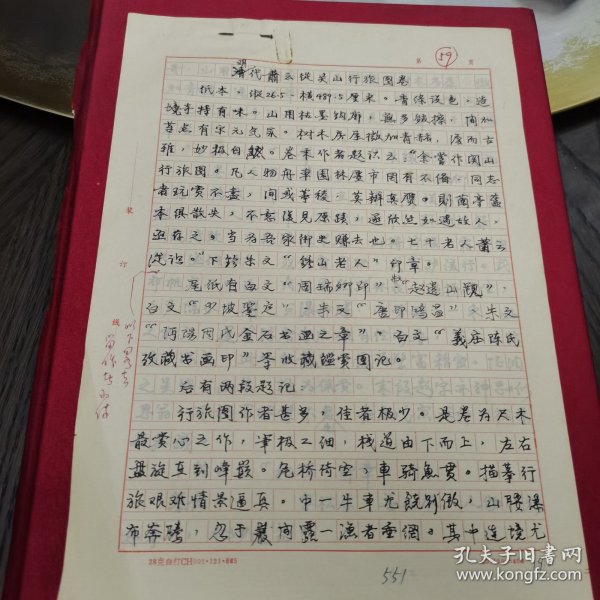 第 59 页
明
清代萧云从关山行旅图卷
纸本。纵26.5、横489.5厘米。青绿设色,造
境奇特有味。山用枯墨钩廓,无多皴擦,间加
苔点有宋元气采。树木房屋微加青赭,浓而古
雅,妙极自然。卷末作者题识云“余尝作关山
行旅图。凡人物舟车园林廛市罔有不备,同志
者玩赏不尽,间或摹稜,莫辨真赝。
本俱散失,不意复见原迹,遂欣然如遇故人,
亟存之。当为吾家御史赠去也。七十老人萧云
从识。”下钤朱文“钟山老人”印章。
尾纸有白文“周瑞卿印”“赵道山观”、
白文“少坡鉴定”、朱文“唐印鸿昌”、朱文
“阿阳同氏金石书画之章”、白文“义庄陈氏
收藏书画印”等收藏鉴赏图记。
后有两段题记
行旅图作者甚多,佳者极少。是卷为尺木
最赏心之作,笔极工细,栈道由下而上,左右
盘旋直到峰巅。危桥倚空,车骑鱼贯。描摹行
旅艰难情景逼真。中一牛车尤饶别傲,山腰瀑
布奔腾,忽于岩间露一渔者垂纲。其中造境尤
装
订
线
28克自打CH
551
孔夫子旧书网
www.kongfz.com